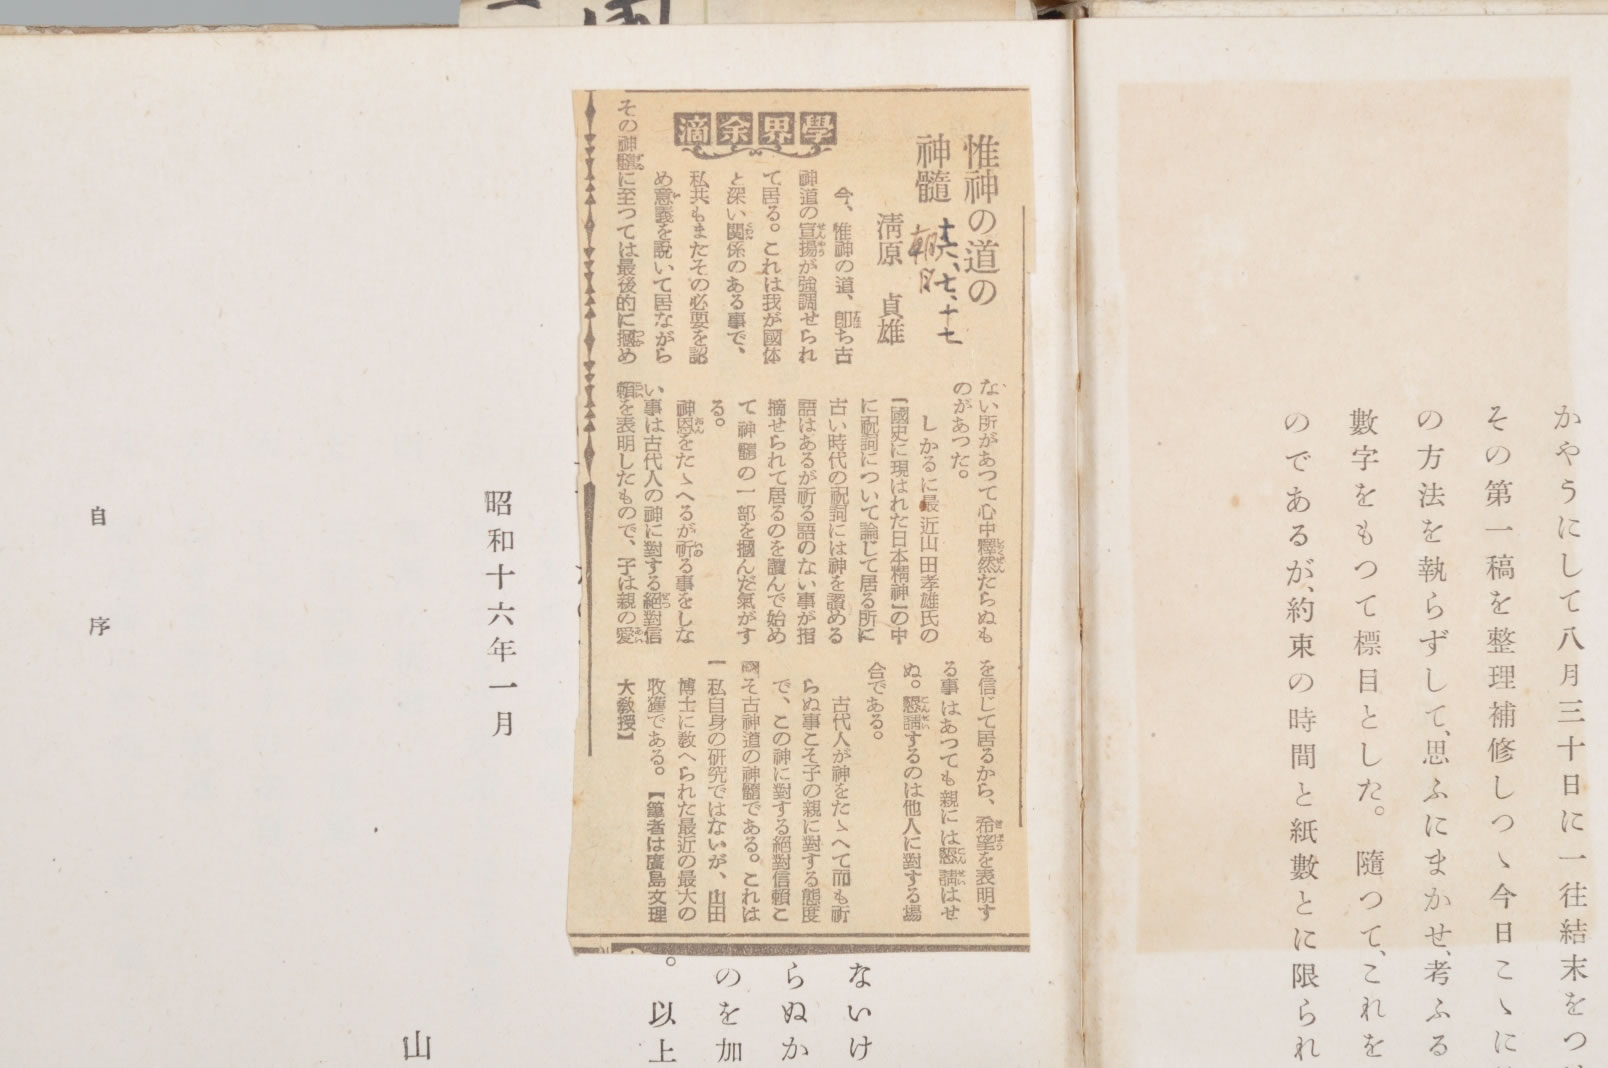 かやうにして八月三十日に一往結末をつ
その第一稿を整理補修しつゝ今日こゝに
の方法を執らずして、思ふにまかせ、考ふる
數字をもつて標目とした。隨つて、これを
のであるが、約束の時間と紙數とに限られ
學界余滴
惟神の道の
神髓
十六、七、十七
清原 貞雄
今、惟神の道、即ち古
神道の宣揚が強調せられ
て居る。これは我が國体
と深い関係のある事で、
私共もまたその必要を認
め意義を説いて居ながら
その神髓に至つては最後的に摑め
ない所があつて心中釋然たらぬも
のがあつた。
しかるに最近山田孝雄氏の
【國史に現はれた日本精神】の中
に祝詞について論じて居る所に
古い時代の祝詞には神を讃める
語はあるが祈る語のない事が指
摘せられて居るのを讀んで始め
て神髓の一部を摑んだ氣がす
る。
神恩をたゝへるが祈る事をしな
い事は古代人の神に對する絕對信
頼を表明したもので、子は親の愛
を信じて居るから、希望を表明す
る事はあつても親には懇請はせ
ぬ。懇請するのは他人に對する場
合である。
古代人が神をたゝへて而も祈
らぬ事こそ子の親に對する態度
で、この神に對する絕對信賴こ
そ古神道の神髓である。これは
私自身の研究ではないが、山田
博士に教へられた最近の最大の
收獲である。【筆者は廣島文理
大教授】
ないけ
らぬか
のを加
。以上
昭和十六年一月
山
自序